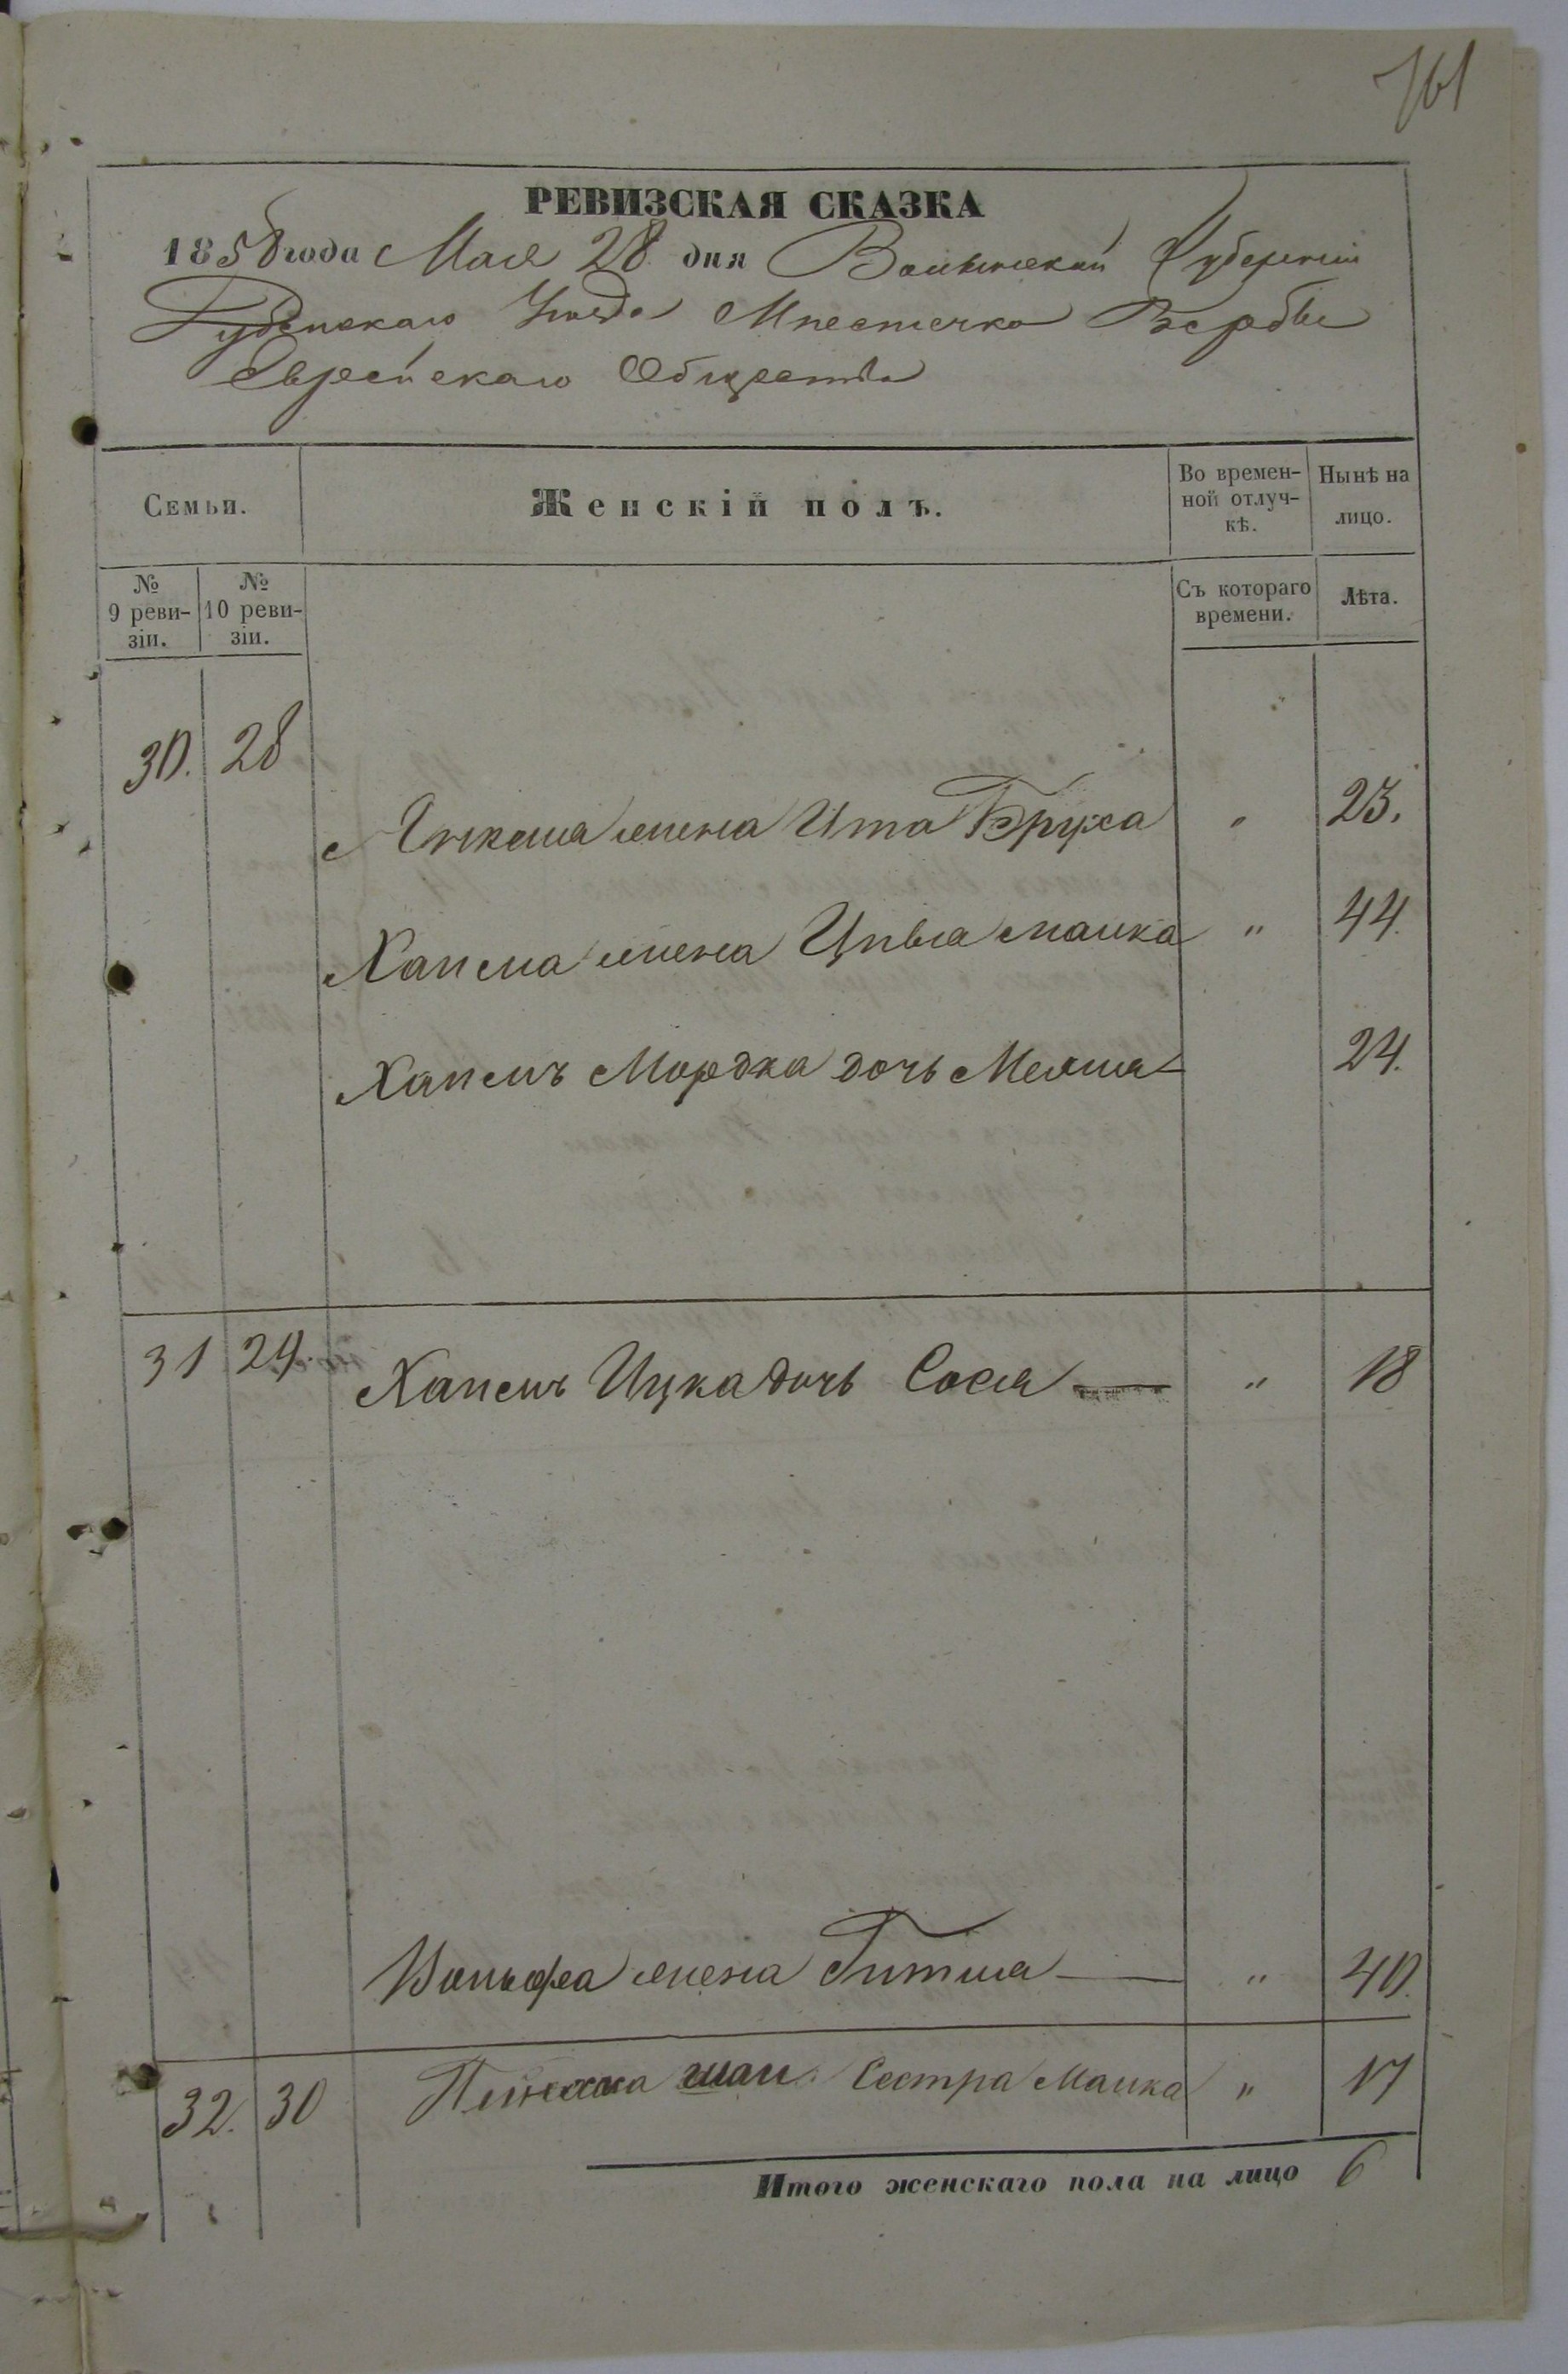 761
РЕВИЗСКАЯ СКАЗКА
1858 года Мая 28 дня Волынской Губернии
Дубенскаго Уезда Местечка Вербы
Еврейскаго Общества
Семьи.
Женскій полъ.
Во времен-
ной отлуч-
кѣ.
Нынѣ на
лицо.
№
9 реви-
зіи.
№
10 реви-
зіи.
Съ котораго
времени.
Лѣта.
30. 28
жена Ита Бруха " 23.
жена Цивья Малка " 44.
Мордка дочь 24.
31 29. Ицка дочь Сося " 18
Вольфа жена Гитля " 40.
32. 30 Сестра Малка " 17
Итого женскаго пола на лицо 6